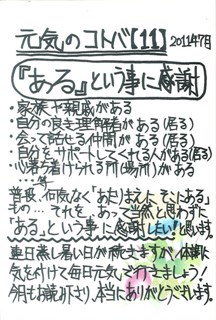 元気のコトバ【11】 2011年7月
『ある』という事に感謝
・家族や親戚がある
・自分の良き理解者がある(居る)
・会って話せる仲間がある(居る)
・自分をサポートしてくれる人がある(居る)
・心落ち着けられる所(場所)がある
……等
普段、何気なく「あたりまえに、そこにある」
もの…それを、あって当然と思わずに
「ある」という事に感謝したい!と思います。
毎日蒸し暑い日が続きますが、体調に
気を付けて毎日元気で行きましょう!
今月もお読み下さり、本当にありがとうございます。